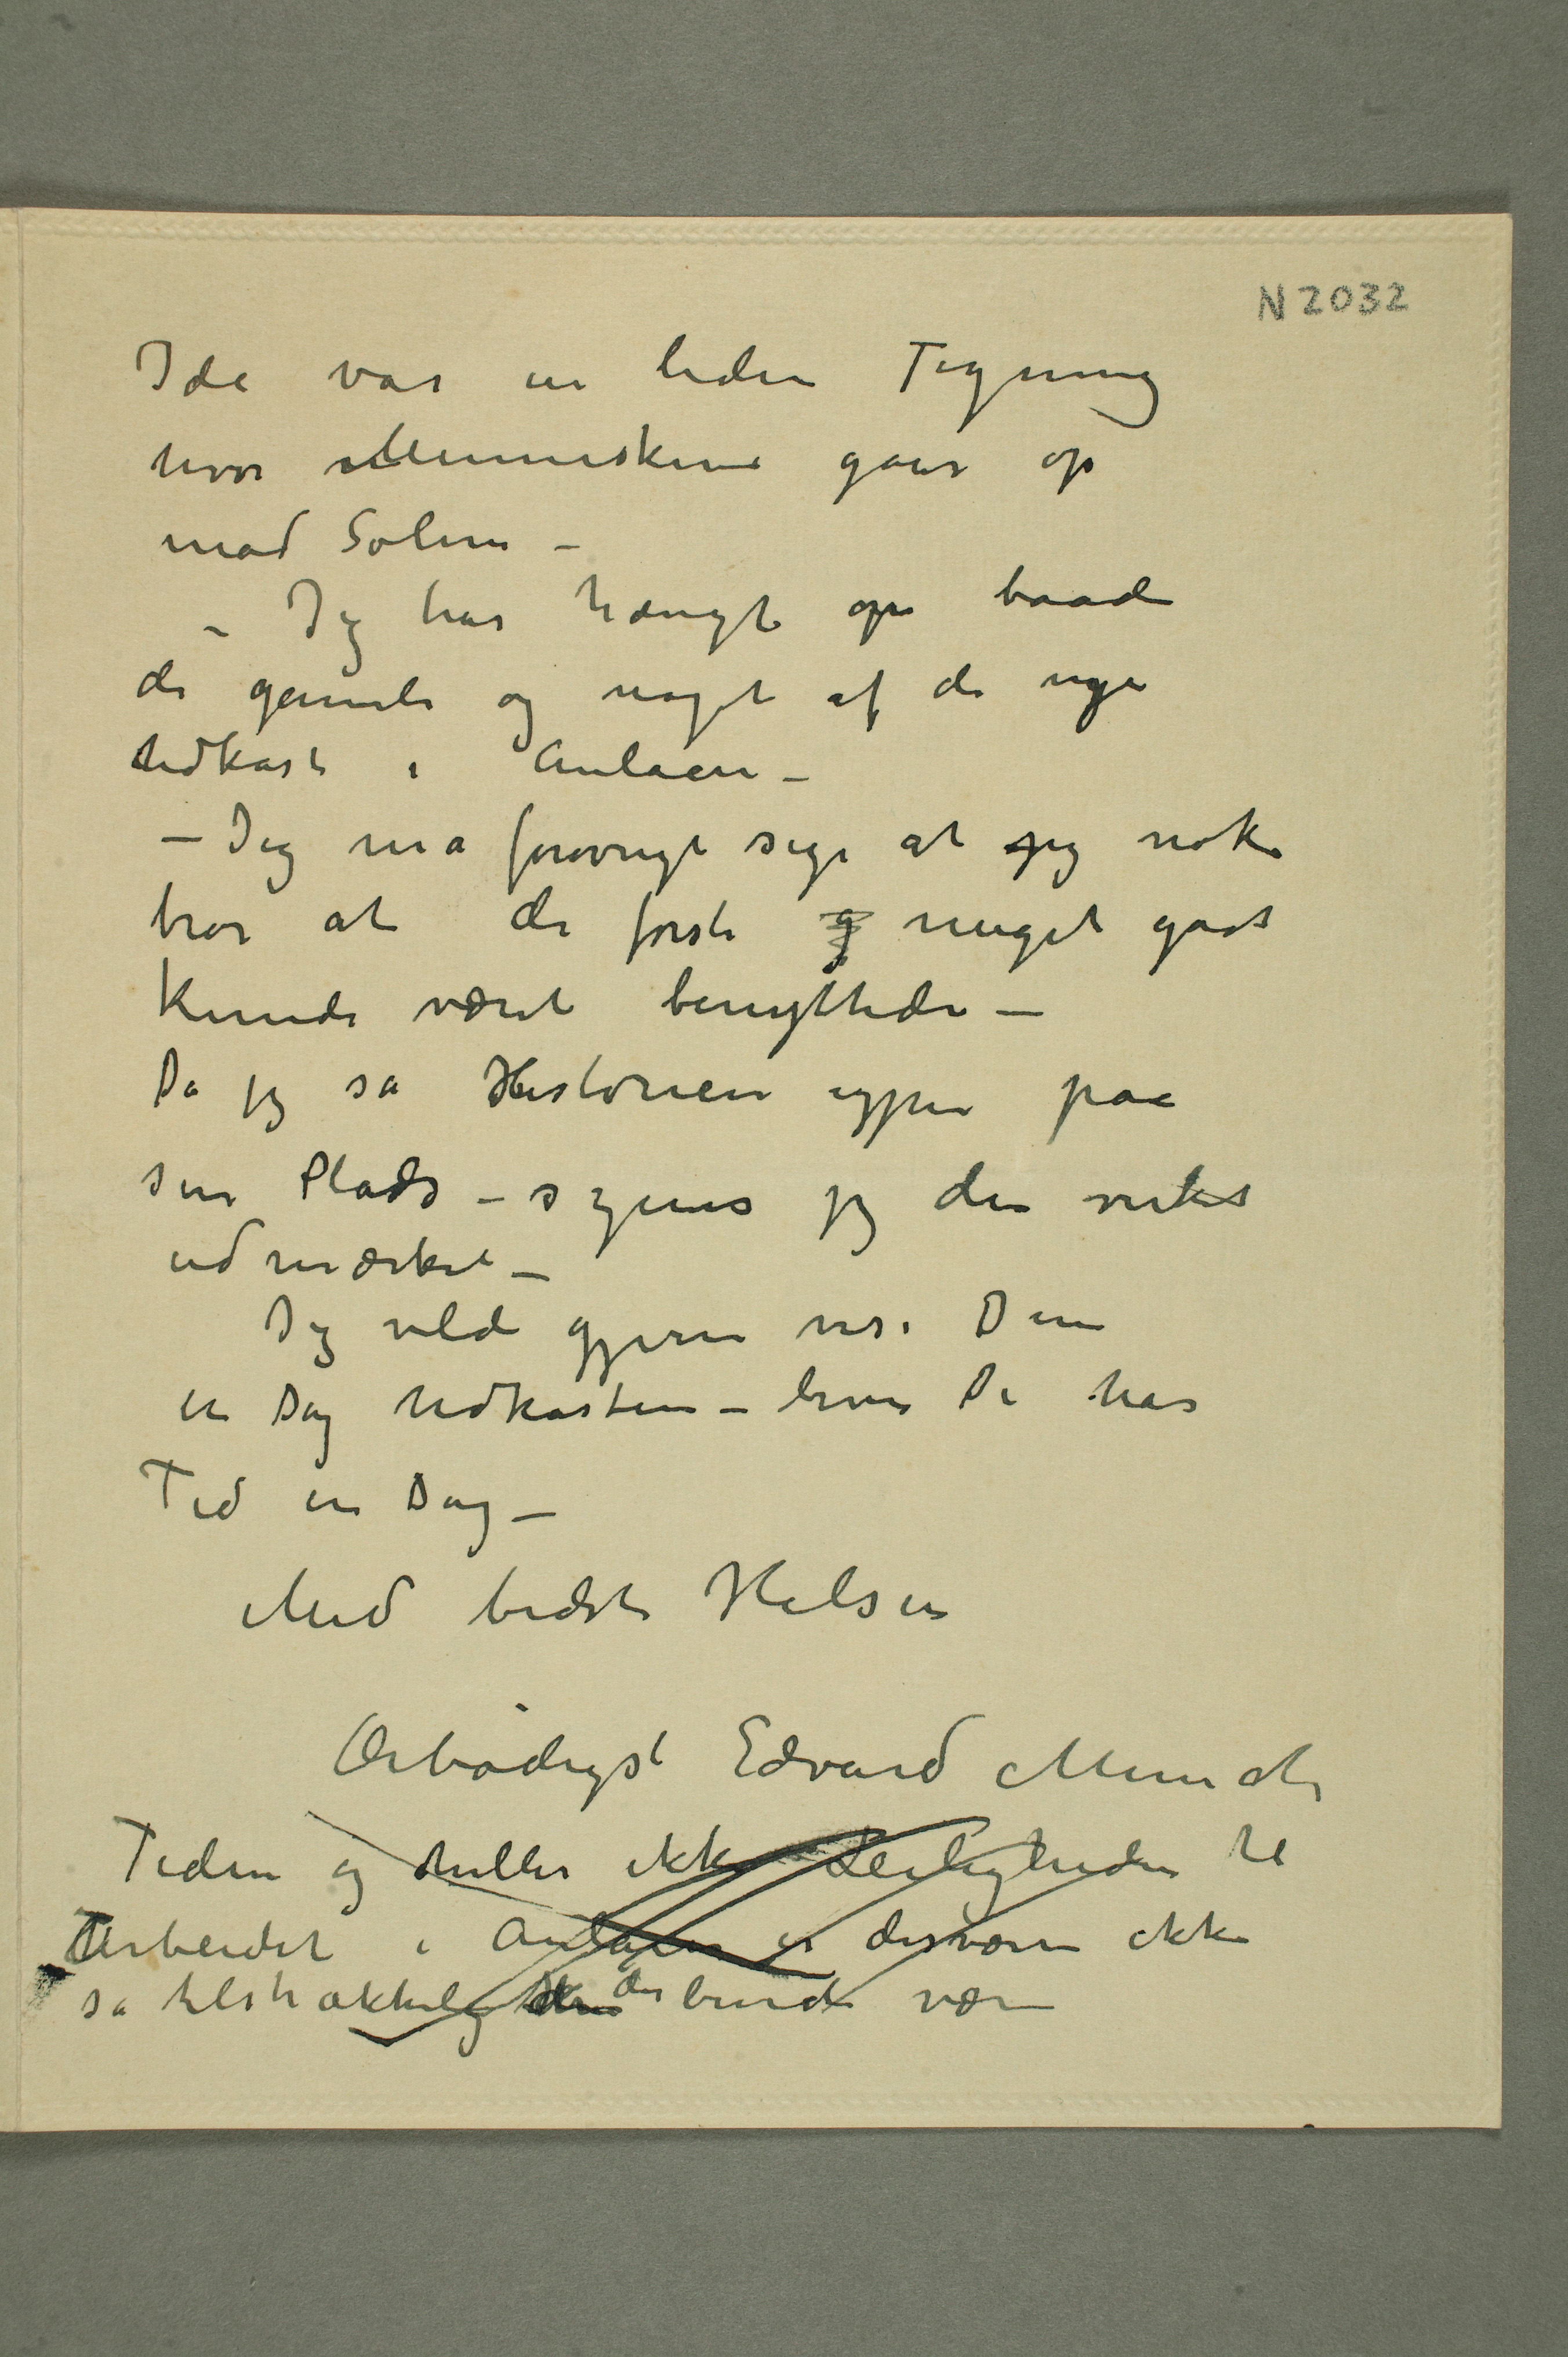 N 2032
Ide var en liden Tegning
hvor Menneskene gaar op
mod Solen –
– Jeg har hængt op baade
de gamle og noget af de nye
Udkast i Aulaen –
– Jeg må forøvrigt sige at jeg nok
tror at de første g meget godt
kunde været benyttede –
Da jeg så Historien oppe paa
sin Plads – synes jeg den virket
udmærket –
Jeg vilde gjerne vise Dem
en Dag Udkastene – hvis De har
Tid en Dag –
Med bedste Hilsen
Ærbødigst Edvard Munch
Tiden og heller ikke Leiligheden til
Arbeidet i Aulaen er desværre ikke
så tilstrækkelig der burde være